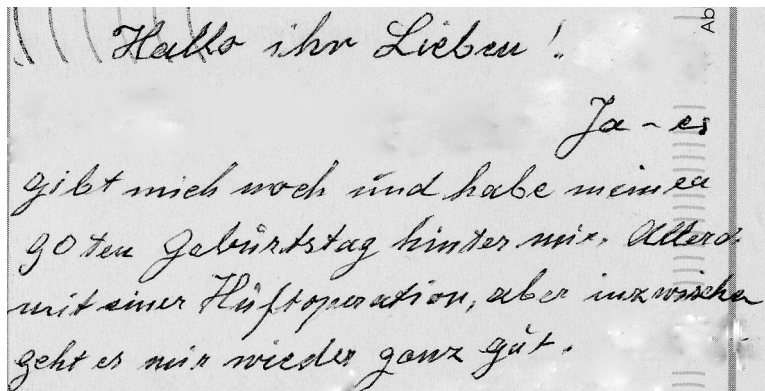 Hallo ihr Lieben!
Ab
Ja - es
gibt mich noch und habe meinen
90ten Geburtstag hinter mir. Allerd.
mit einer Hüftoperation, aber inzwischen
geht es mir wieder ganz gut.